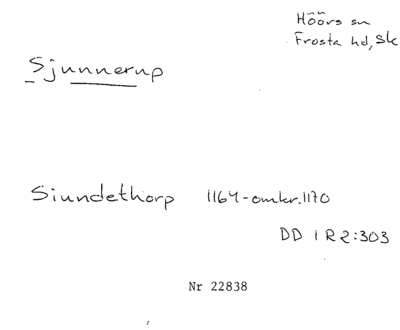 Höörs sn
Frosta hd, Sk
Sjunnerup
Siundethorp 1164-omkr. 1170
DD 1 R 2:303
Nr 22838